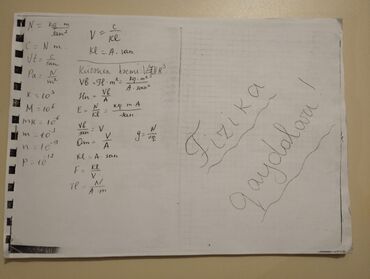 N = kq · m / san²
C = N · m
Vt = C / san
Pa = N / m²
K = 10³
M = 10⁶
mK = 10⁻⁶
m = 10⁻³
n = 10⁻⁹
p = 10⁻¹²
V = C / Kl
Kl = A · san
Vb = Tl · m² = kq · m² / A · san²
Hn = Vb / A
E = N / Kl = kq · m · A / san
Vb / san = V
Om = V / A
g = N / kq
Kl = A · san
F = Kl / V
Tl = N / A · m
Fizika
qaydaları!